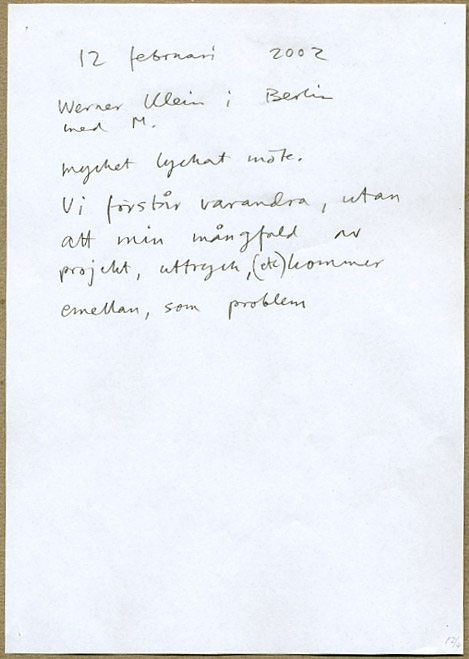 12 februari 2002
Werner Klein i Berlin
med M.
mycket lyckat möte.
Vi förstår varandra, utan
att min mångfald av
projekt, uttryck, (etc) kommer
emellan, som problem